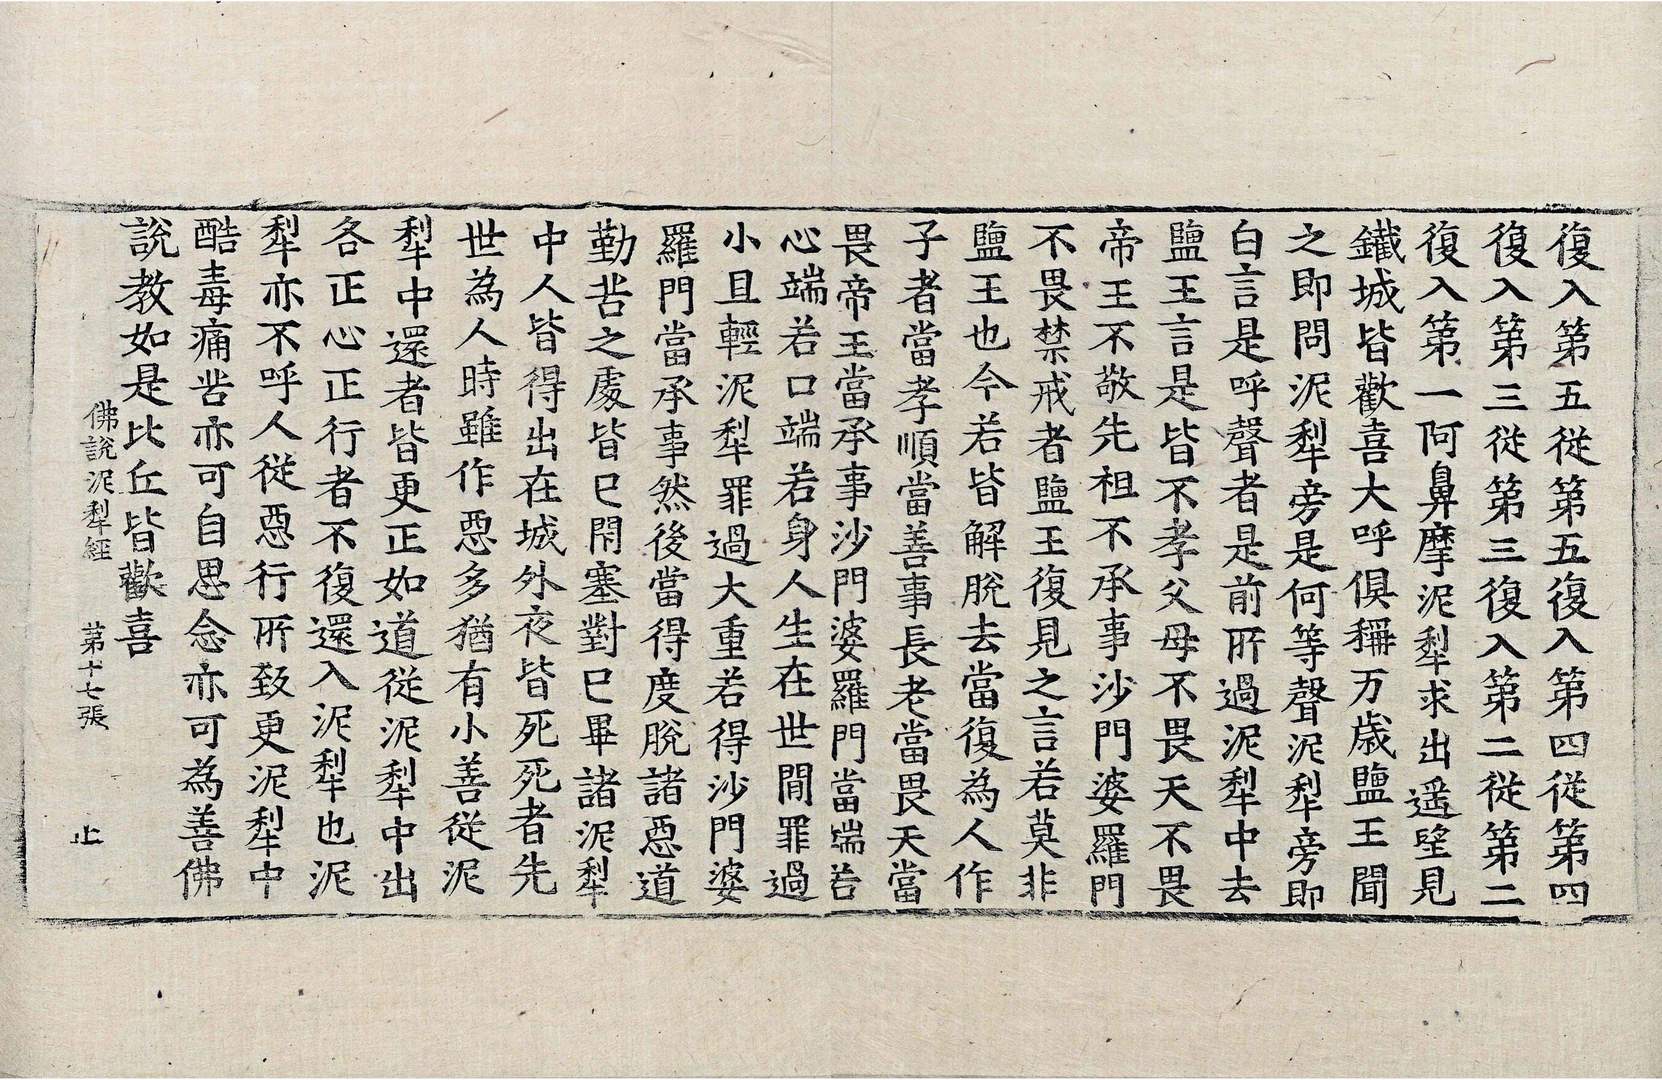 復入第五從第五復入第四從第四
復入第三從第三復入第二從第二
復入第一阿鼻摩泥犁求出遥望見
鐵城皆歡喜大呼俱稱万歳鹽王聞
之即問泥犁旁是何等聲泥犁旁即
白言是呼聲者是前所過泥犁中去
鹽王言是皆不孝父母不畏天不畏
帝王不敬先祖不承事沙門婆羅門
不畏禁戒者鹽王復見之言若莫非
鹽王也今若皆解脫去當復為人作
子者當孝順當善事長老當畏天當
畏帝王當承事沙門婆羅門當端若
心端若口端若身人生在世間罪過
小且輕泥犁罪過大重若得沙門婆
羅門當承事然後當得度脫諸惡道
勤苦之處皆已閉塞對已畢諸泥犁
中人皆得出在城外夜皆死死者先
世為人時雖作惡多猶有小善從泥
犁中還者皆更正如道從泥犁中出
各正心正行者不復還入泥犁也泥
犁亦不呼人從惡行所致更泥犁中
酷毒痛苦亦可自思念亦可為善佛
說教如是比丘皆歡喜
佛說泥犁經 第十七張 止